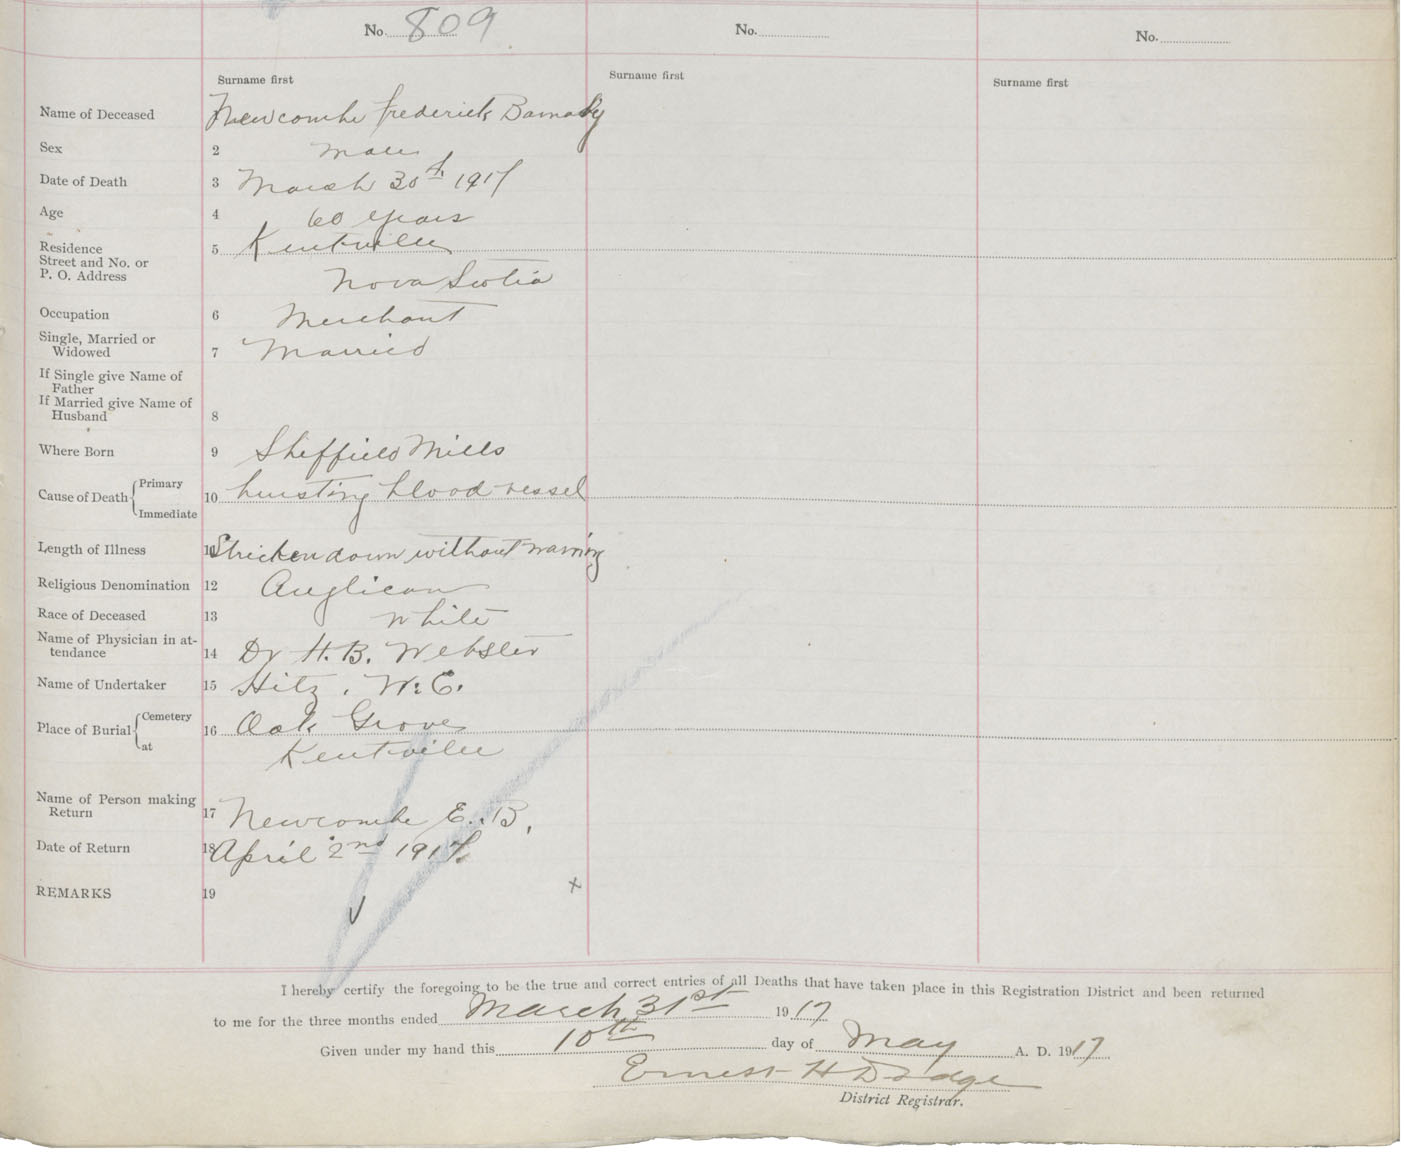 No. 809
No.
No.
Surname first
Surname first
Surname first
Name of Deceased Newcombe Frederick Barnaby
Sex 2 Male
Date of Death 3 March 30th 1917
Age 4 60 years
Residence
Street and No. or
P. O. Address
5 Kentville
Nova Scotia
Occupation 6 Merchant
Single, Married or
Widowed 7 Married
If Single give Name of
Father
If Married give Name of
Husband 8
Where Born 9 Sheffield Mills
Cause of Death { Primary
Immediate
10 bursting blood vessel
Length of Illness 11 Stricken down without warning
Religious Denomination 12 Anglican
Race of Deceased 13 White
Name of Physician in at-
tendance 14 Dr H. B. Webster
Name of Undertaker 15 Hitz, W. C.
Place of Burial { Cemetery
at
16 Oak Grove
Kentville
Name of Person making
Return 17 Newcombe E. B.
Date of Return 18 April 2nd 1917.
REMARKS 19
x
I hereby certify the foregoing to be the true and correct entries of all Deaths that have taken place in this Registration District and been returned
to me for the three months ended March 31st 1917
Given under my hand this 10th day of May A. D. 1917
Ernest H Dodge
District Registrar.